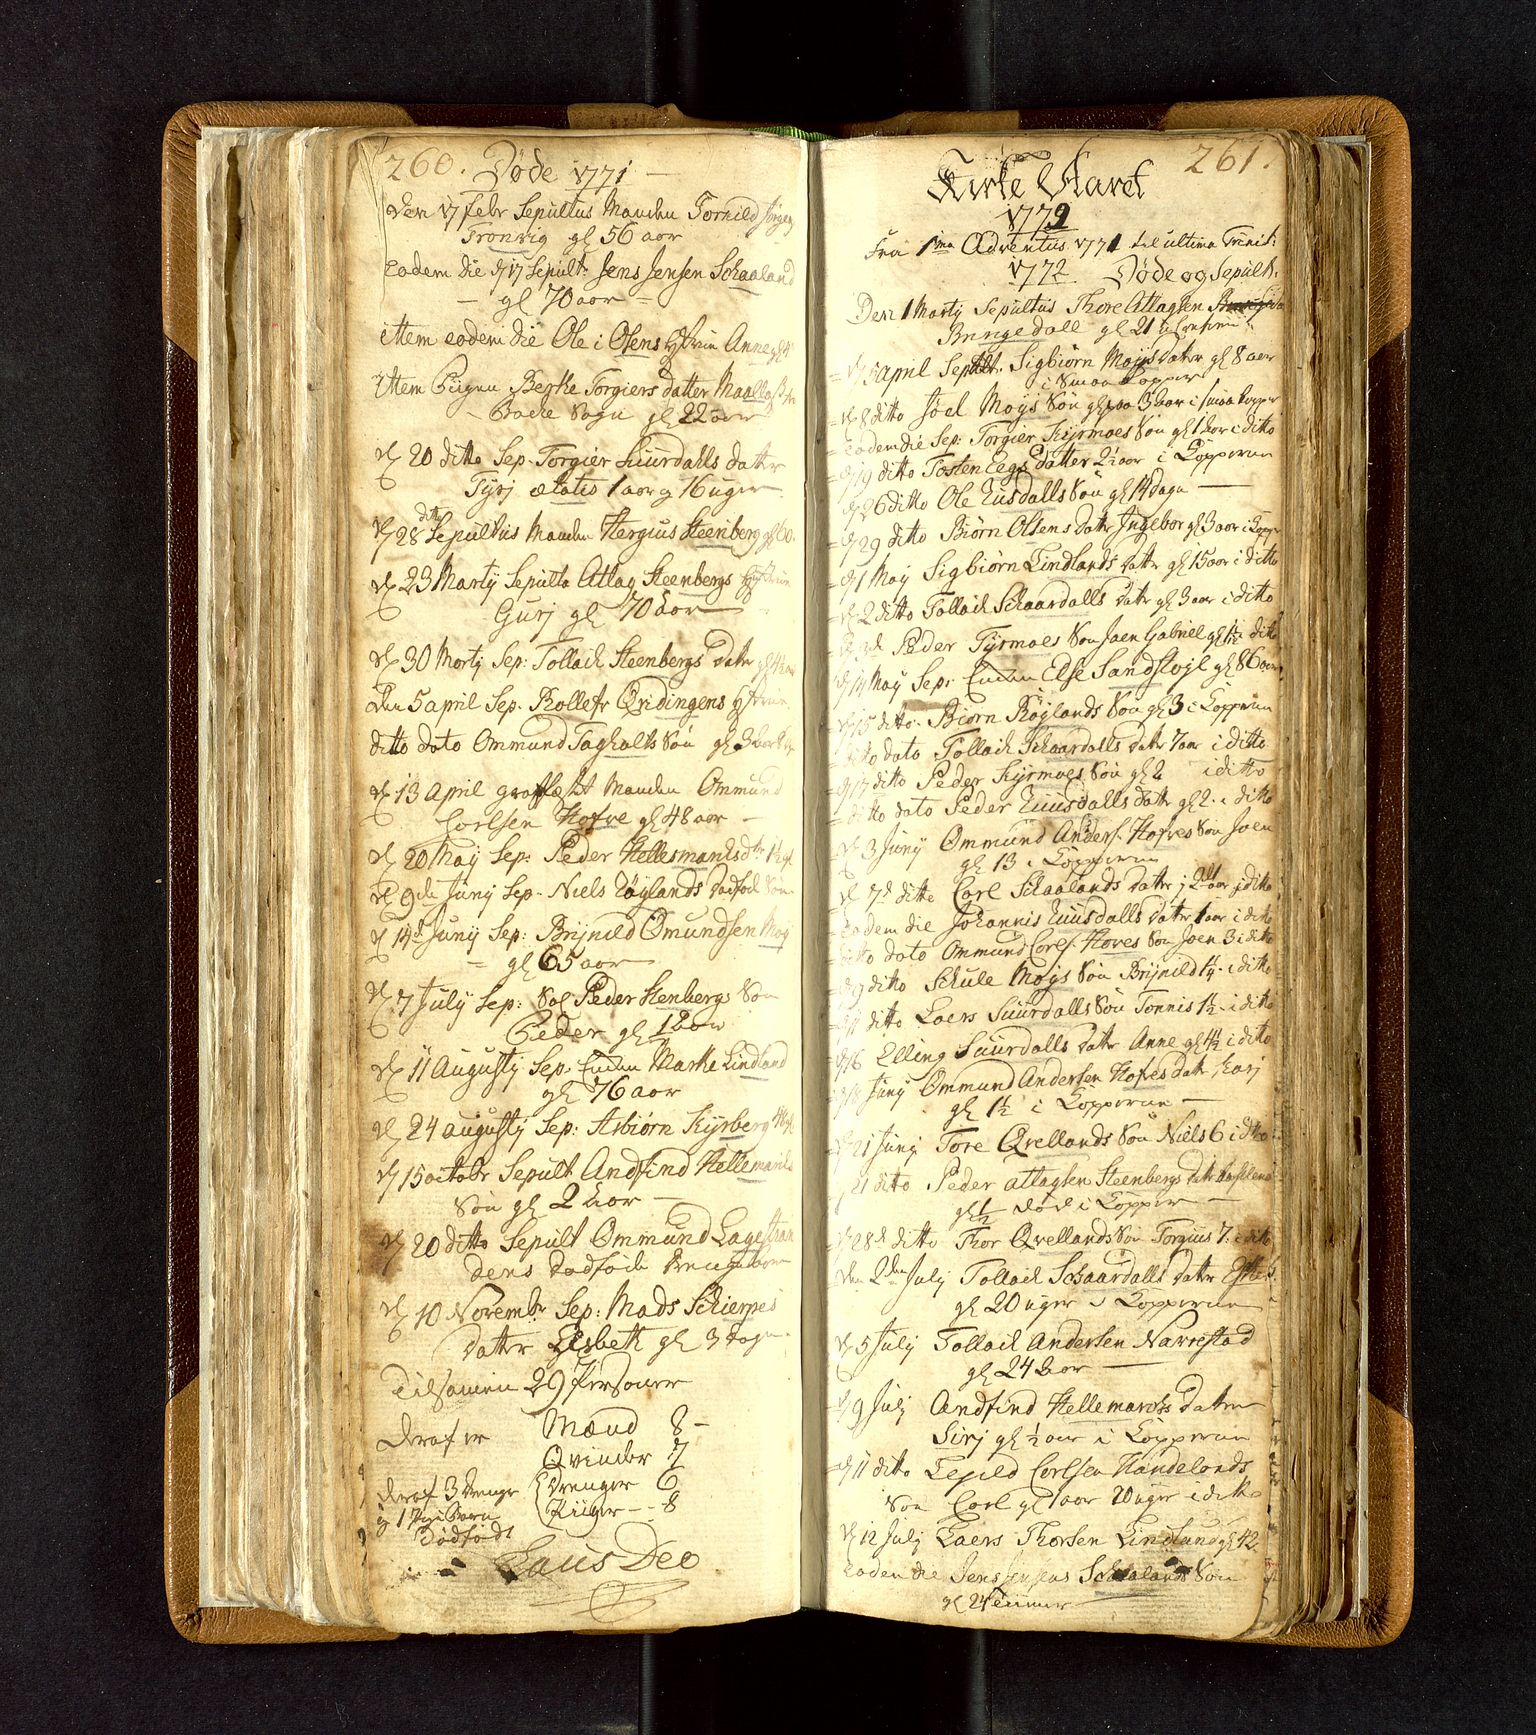 260. Døde 1771
Den 17 Febr Sepultus Manden Tornild
Tronvig gl 56 aar
eodem die d 17 Sepult: Jens Jensen Schaaland
gl 70 aar
ittem eodem die Ole i Olsens Hustrue Anne gl
ittem Piigen Berthe Torgiers datter
Sogn gl 22 aar
d 20 ditto Sep. Torgier Suurdahls datter
Tyrj ætatis 1 aar og 16 uger
d 28 ditto Sepultus Manden Hergius Steenberg gl 60.
d 23 Martij Sepulta Atlag Steenbergs Hustrue
Gurj gl 70 aar
d 30 Martij Sep: Tollach Steenbergs datter gl 4½ aar
Den 5 april Sep. Rollefr Qvidingens Hustrue
ditto dato Ommund Tagholts Søn gl 3
d 13 April Manden Ommund
Corlsen Hofve gl 48 aar
d 20 Maij Sep: Peder Hellesmarks dtr 1½ gl
d 9de Junij Sep. Niels Røylands dødfød Søn
d 14d Junij Sep: Brynild Omundsen Moy
gl 65 aar
d 7 Julij Sep: Peder Stenbergs Søn
Peder gl 12 aar
d 11 Augustij Sep. Enken Marthe Lindland
gl 76 aar
d 24 augustij Sep: Asbiørn Kyrberg
d 15 octobr Sepult Andfind Hellemarks
Søn gl 2 aar
d 20 ditto Sepult Ommund Lagestran
dens dødføde drengebarn
d 10 Novembr Sep: Mads Schierpes
datter Elsbeth gl 3 dage
Tilsamen 29 Personer
deraf er Mænd 8
Qvinder 7
deraf 3 drenge Drenger 6
og 1 Pigebarn Piiger 8
Dødfødt
Laus Deo
261.
Kirke Aaret
1772
Fra 1ma Adventus 1771 til ultima Trinit:
1772 Døde og Sepult.
Den 1 Martij Sepultus Thore Atlagsen
Bringedall gl 21
d 5 april Sepult. Sigbiørn Moijs datter gl 8 aar
i Smaa Kopper
d 8 ditto Joel Moijs Søn gl 3 aar i smaa kopper
eodem die Sep: Torgier Kyrmoes Søn gl 1 aar i ditto
d 19 ditto Tosten Eegs datter 2½ aar i Kopperne
d 26 ditto Ole Eusdalls Søn gl 14 dage
d 29 ditto Biørn Olsens datr Ingebor gl 3 aar i Kopper
d 1 Maij Sigbiørn Lindlands datr gl 15 aar i ditto
d 2 ditto Tollach Schaardalls datr gl 3 aar i ditto
Peder Tyrmoes Søn Jaen Gabriel gl 1½ i ditto
d 14 Maij Sep: Enken Else Sandstøl gl 86 aar
d 15 ditto Biørn Røylands Søn gl 3 i Kopperne
ditto dato Tollach Schaardalls datr 7 aar i ditto
d 17 ditto Peder Kyrmoes Søn gl 2 i ditto
ditto dato Peder Euusdalls datr gl 2 i ditto
d 3 Junij Ommund Anders. Hofves Søn Joen
gl 13 i Kopperne
d 7d ditto Corl Schaalands datr 2¼ aar i ditto
eodem die Johannis Euusdalls datr 1 aar i ditto
ditto dato Ommund Corls. Hoves Søn Joen 3 i ditto
d 9 ditto Schule Moijs Søn Brynild 1¼ i ditto
d 11 ditto Laers Suurdalls Søn Tonnis 1½ i ditto
d 16 Elling Suurdalls datr Anne gl 4½ i ditto
d 18 Junij Ommund Andersen Hofves datr Karj
gl 1½ i Kopperne
d 21 Junij Tore Qvellands Søn Niels 6 i ditto
d 21 ditto Peder attagsen Steenbergs datr
gl ½ død i Kopper
d 28d ditto Thor Qvellands Søn Torgius 7. i ditto
Den 2den Julij Tollach Schaardalls datr
gl 20 uger i Kopperne
d 5 Julij Tollach Andersen Narrestad
gl 24 aar
d 9 Julij Andfind Hellemarks datter
Sirj gl ½ aar i Kopperne
d 11 ditto Tepild Corlsen Handelands
Søn Corl gl 1 aar 20 uger i ditto
d 12 Julij Laers Thorsen Lindland gl 42.
eodem die Jens Jensens Schaalands Søn
gl 24